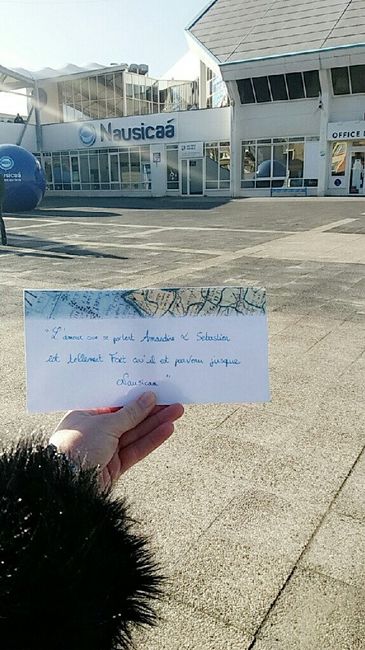 Nausicaá
OFFICE D
usicaá
"L'amour que se portent Amandine & Sébastien
est tellement Fort qu'il est parvenu jusque
Nausicaa"